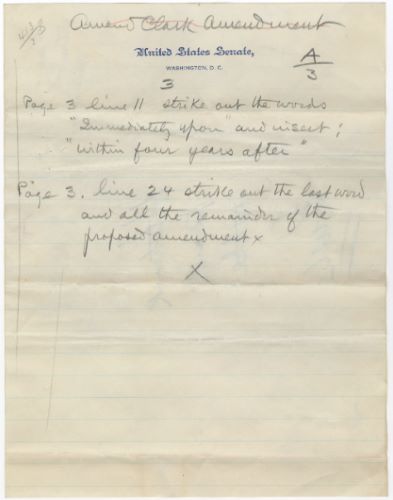 Amend Clark Amendment
United States Senate,
WASHINGTON, D.C.
A/3
3
Page 3 line 11 strike out the words
"Immediately upon" and insert;
"within four years after"
Page 3. line 24 strike out the last word
and all the remainder of the
proposed amendment x
X